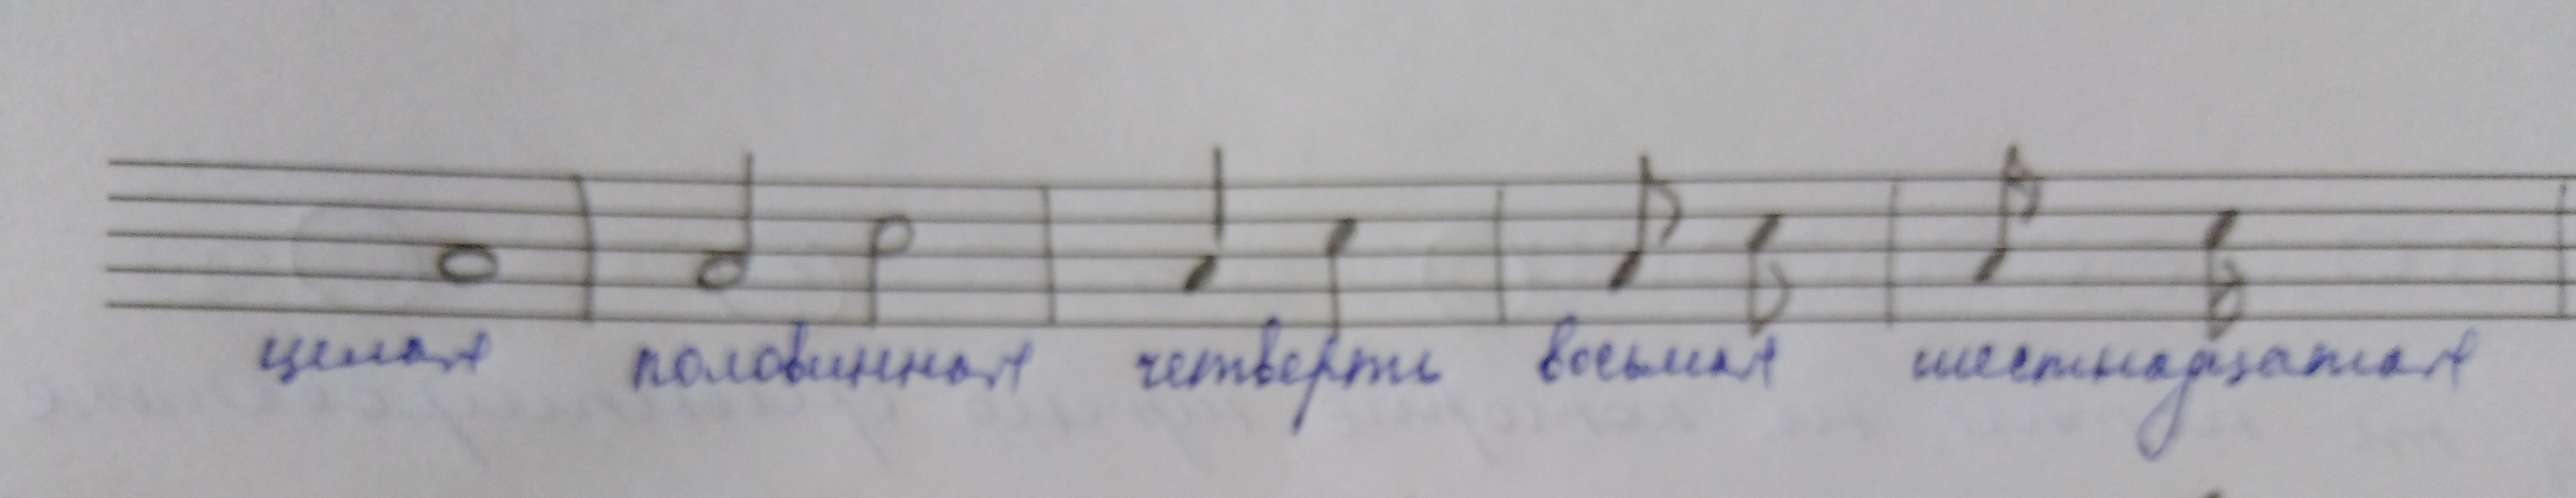 целая половинная четверть восьмая шестнадцатая